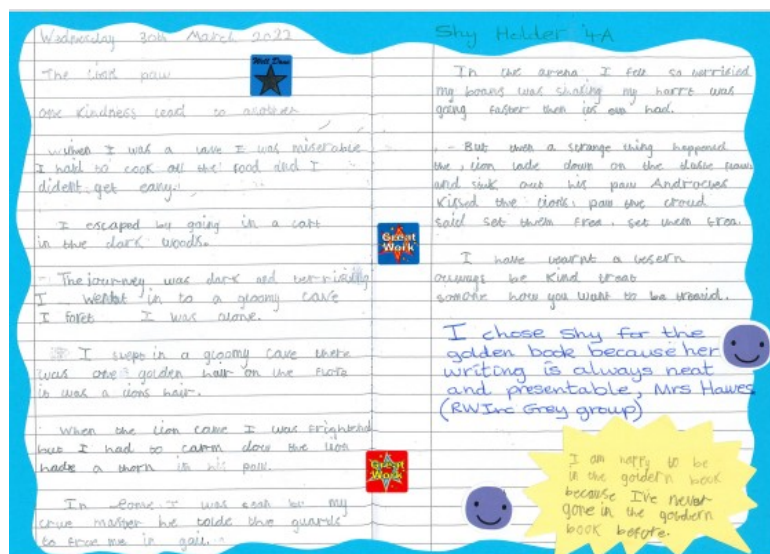 Wednesday 30th March 2022
The lions paw
one kindness lead to another
When I was a slave I was miserable
I had to cook all the food and I
dident get eany.
I escaped by going in a cart
in the dark woods.
The journey was dark and terrising
I went in to a gloomy cave
I foret I was alone.
I slept in a gloomy cave there
was one golden hair on the flore
it was a lions hair.
When the lion came I was frightend
but I had to carm dow the lion
hade a thorn in his paw.
In Rome I was by my
crue master he tolde the guards
to me in gail.
Well Done
Great Work
Great Work
Shy Holder 4-A
In the arena I felt so terrisied
my boans was shaking my harrt was
going faster then its had.
But then a strange thing happened
the lion lade down on the flore
and out his paw Androcles
kissed the lions paw the croud
said set them free, set them free.
I have learnt a
always be kind treat
someone how you want to be treatid.
I chose Shy for the
golden book because her
writing is always neat
and presentable, Mrs Hawes
(RWInc Grey group)
I am happy to be
in the goldern book
because I've never
gone in the goldern
book before.